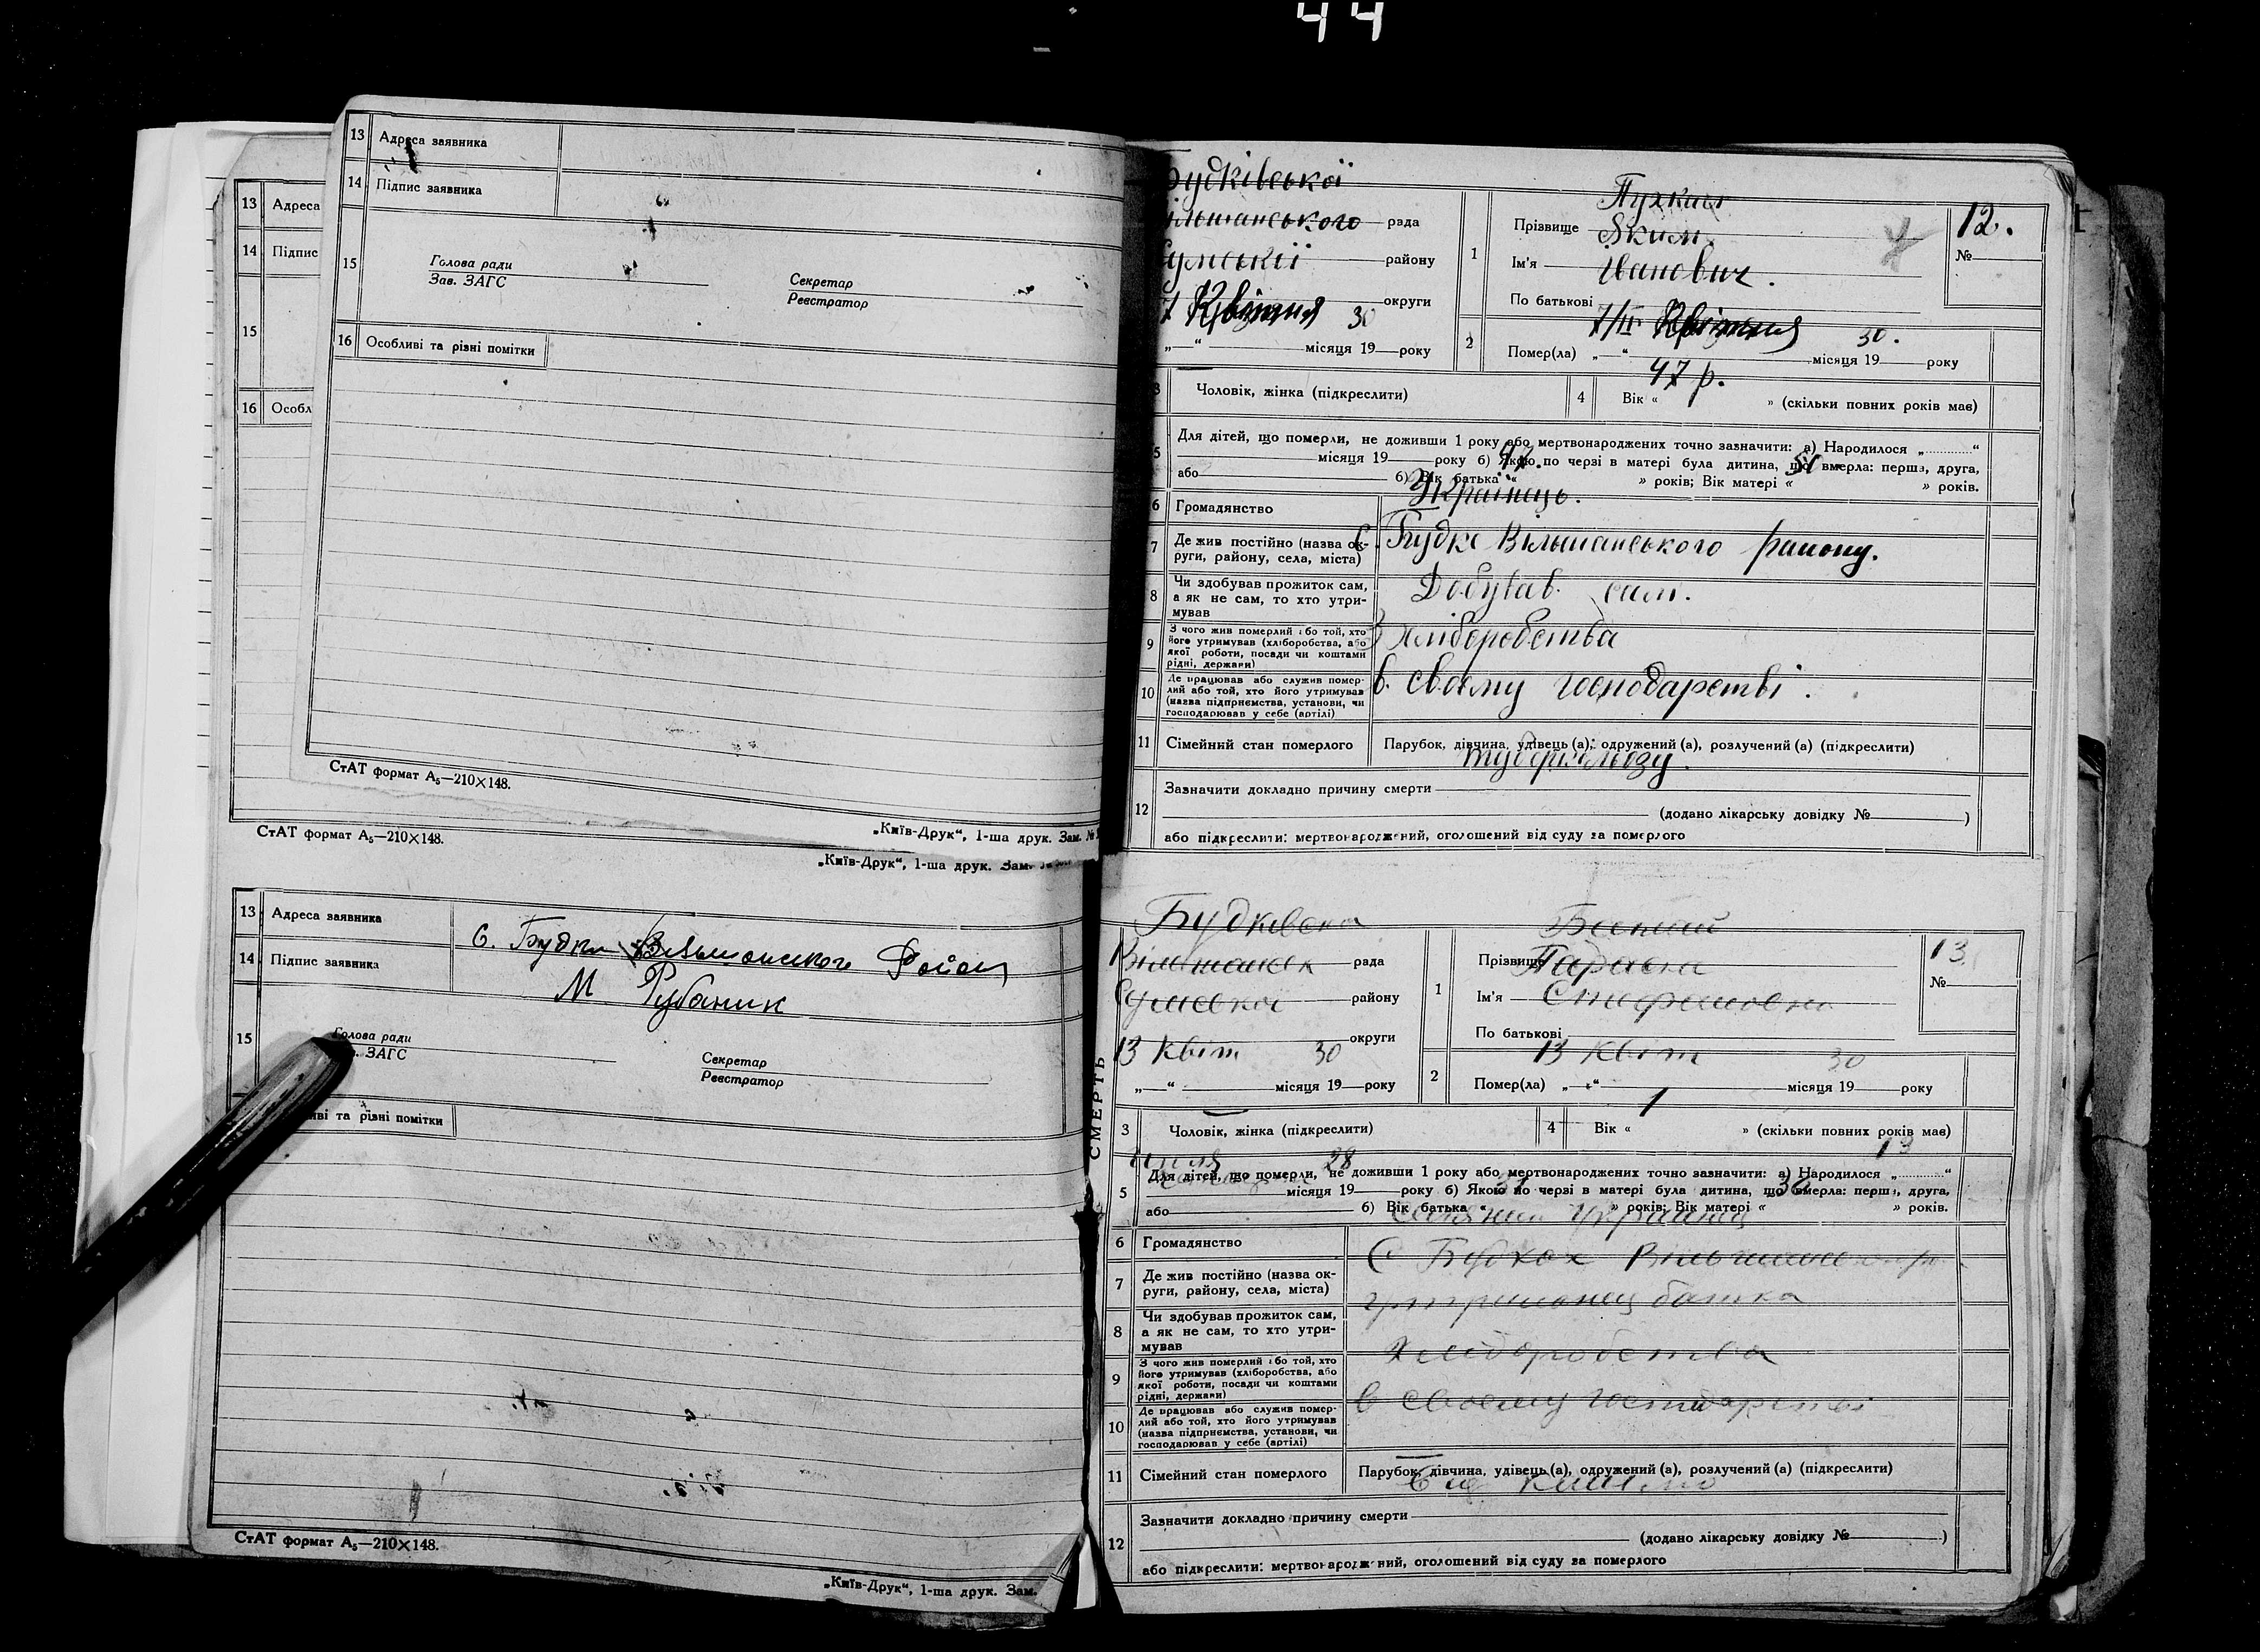 44
13 Адреса
14 Підпис
15
16 Особл
СтАТ формат А₅—210×148.
„Київ-Друк“, 1-ша друк. Зам.
13 Адреса заявника
14 Підпис заявника
15 Голова ради
Зав. ЗАГС
Секретар
Реєстратор
16 Особливі та різні помітки
СтАТ формат А₅—210×148.
„Київ-Друк“, 1-ша друк. Зам. №
13 Адреса заявника
с. Будки Вільшанського Район
14 Підпис заявника
М Рубаник
15 Голова ради
ЗАГС
Секретар
Реєстратор
иві та різні помітки
СтАТ формат А₅—210×148.
„Київ-Друк“, 1-ша друк. Зам.
Будківської
Вільшанського рада
Сумської району
7 Квітня 30 округи
„—“ місяця 19—року
1 Прізвище
Яким
Ім'я
Іванович.
По батькові
12.
№
7/ІІ Квітня 30.
2 Помер(ла) „—“ місяця 19—року
3 Чоловік, жінка (підкреслити)
47 р.
4 Вік « » (скільки повних років має)
5 Для дітей, що померли, не доживши 1 року або мертвонароджених точно зазначити: а) Народилося „........“
місяця 19—року б) Якою по черзі в матері була дитина, що вмерла: перша, друга,
або б) Вік батька « » років; Вік матері « » років.
6 Громадянство
Українець.
7 Де жив постійно (назва округи, району, села, міста)
С. Будкс Вільшанського району.
8 Чи здобував прожиток сам, а як не сам, то хто утримував
Добував сам.
9 З чого жив померлий або той, хто його утримував (хліборобства, або якої роботи, посади чи коштами рідні, держави)
З хліборобства
10 Де працював або служив померлий або той, хто його утримував (назва підприємства, установи, чи господарював у себе (артілі)
в. своєму господарстві.
11 Сімейний стан померлого
Парубок, дівчина, удівець (а), одружений (а), розлучений (а) (підкреслити)
туберкульозу.
12 Зазначити докладно причину смерти
(додано лікарську довідку № )
або підкреслити: мертвонароджений, оголошений від суду за померлого
СМЕРТЬ
Будківська
Вільшанськ рада
Сумської району
13 Квіт 30 округи
„—“ місяця 19—року
1 Прізвище
Ім'я
По батькові
13.
№
13 Квіт 30
2 Помер(ла) „—“ місяця 19—року
3 Чоловік, жінка (підкреслити)
1
4 Вік « » (скільки повних років має)
28 13
5 Для дітей, що померли, не доживши 1 року або мертвонароджених точно зазначити: а) Народилося „........“
місяця 19—року б) Якою по черзі в матері була дитина, що вмерла: перша, друга,
або б) Вік батька « » років; Вік матері « » років.
6 Громадянство
7 Де жив постійно (назва округи, району, села, міста)
С Будках
8 Чи здобував прожиток сам, а як не сам, то хто утримував
батька
9 З чого жив померлий або той, хто його утримував (хліборобства, або якої роботи, посади чи коштами рідні, держави)
Хліборобства
10 Де працював або служив померлий або той, хто його утримував (назва підприємства, установи, чи господарював у себе (артілі)
в своєму господарстві
11 Сімейний стан померлого
Парубок, дівчина, удівець (а), одружений (а), розлучений (а) (підкреслити)
12 Зазначити докладно причину смерти
(додано лікарську довідку № )
або підкреслити: мертвонароджений, оголошений від суду за померлого